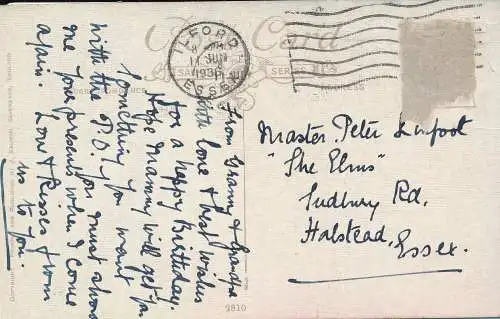 Post Card
ILFORD
11 JUN
1936
ESSEX
From Granny & Grandpa
With love & best wishes
for a happy Birthday.
Hope Mammy will get you
something you want
with the P.O. You must show
me your presents when I come
again. Love & Kisses from
us to you.
Master Peter
"The Elms"
Sudbury Rd,
Halstead,
Essex.
ADDRESS
2810